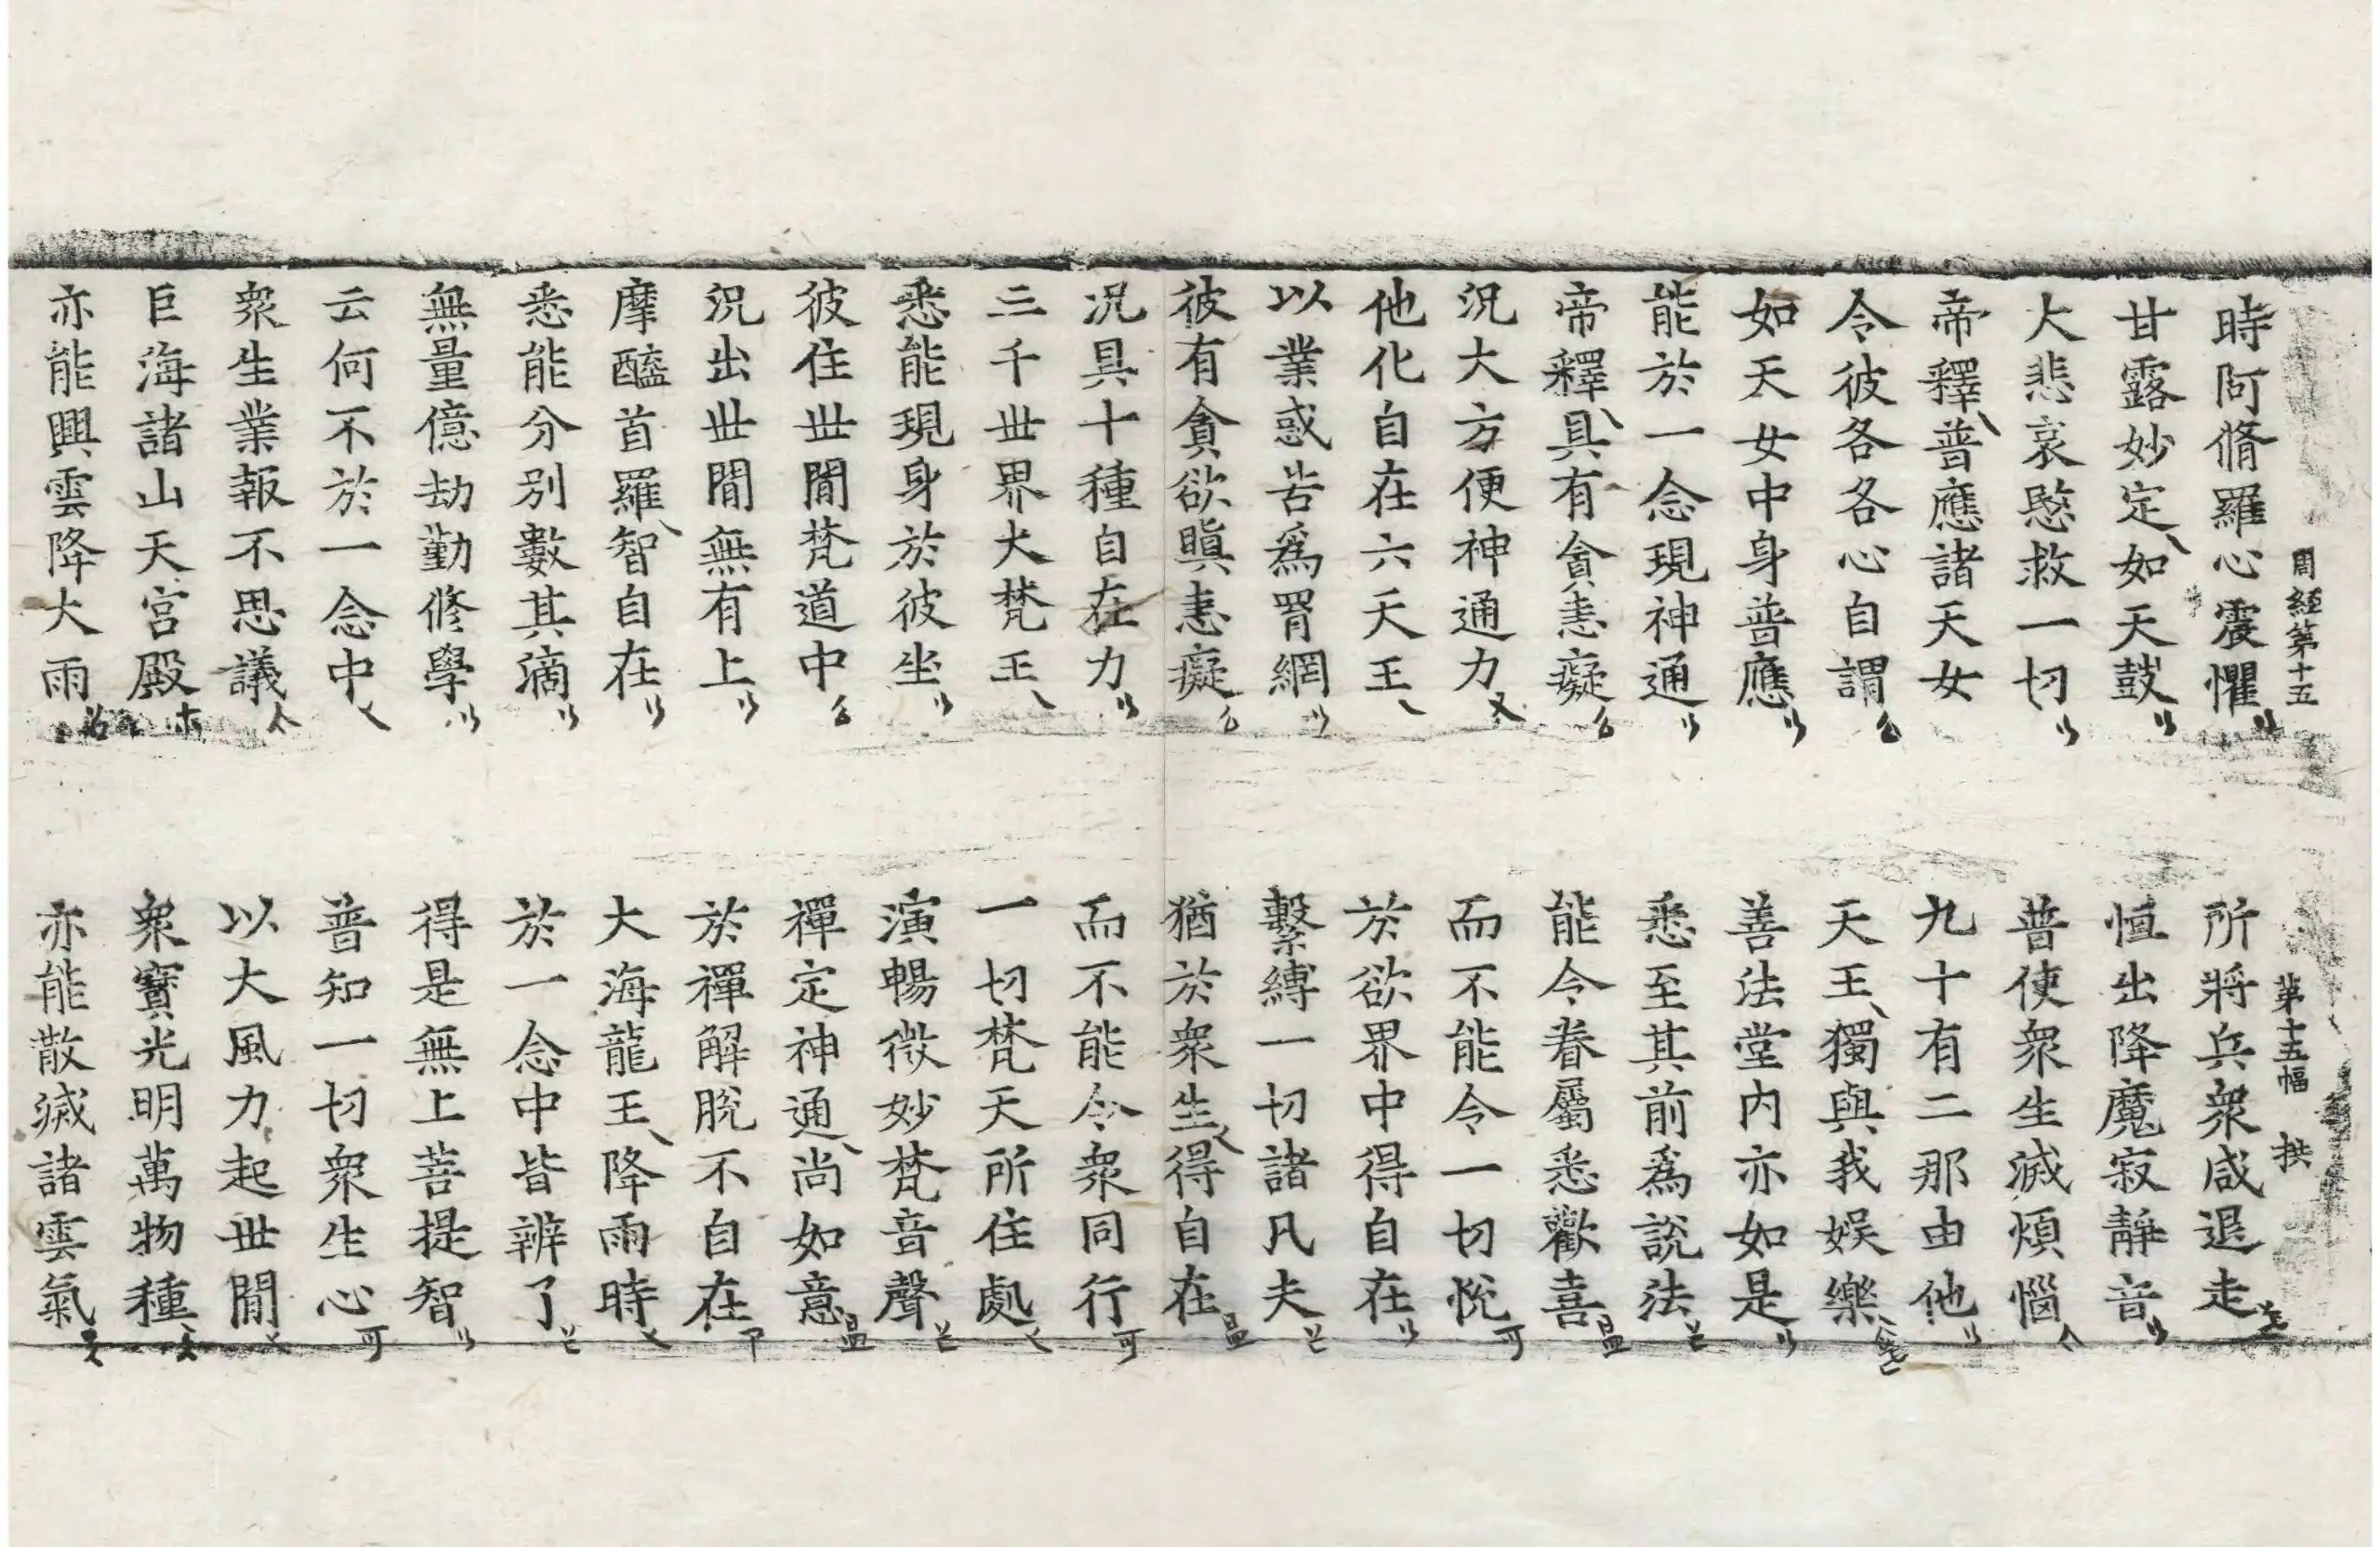 周經第十五 第十五幅 拱
時阿脩羅心震懼 所將兵衆咸退走
甘露妙定如天鼓 恒出降魔寂靜音
大悲哀愍救一切 普使衆生滅煩惱
帝釋普應諸天女 九十有二那由他
令彼各各心自謂 天王獨與我娛樂
如天女中身普應 善法堂内亦如是
能於一念現神通 悉至其前爲說法
帝釋具有貪恚癡 能令眷屬悉歡喜
況大方便神通力 而不能令一切悅
他化自在六天王 於欲界中得自在
以業惑苦爲罥網 繫縛一切諸凡夫
彼有貪欲瞋恚癡 猶於衆生得自在
況具十種自在力 而不能令衆同行
三千世界大梵王 一切梵天所住處
悉能現身於彼坐 演暢微妙梵音聲
彼住世間梵道中 禪定神通尚如意
況出世間無有上 於禪解脫不自在
摩醯首羅智自在 大海龍王降雨時
悉能分別數其滴 於一念中皆辨了
無量億劫勤修學 得是無上菩提智
云何不於一念中 普知一切衆生心
衆生業報不思議 以大風力起世間
巨海諸山天宮殿 衆寶光明萬物種
亦能興雲降大雨 亦能散滅諸雲氣